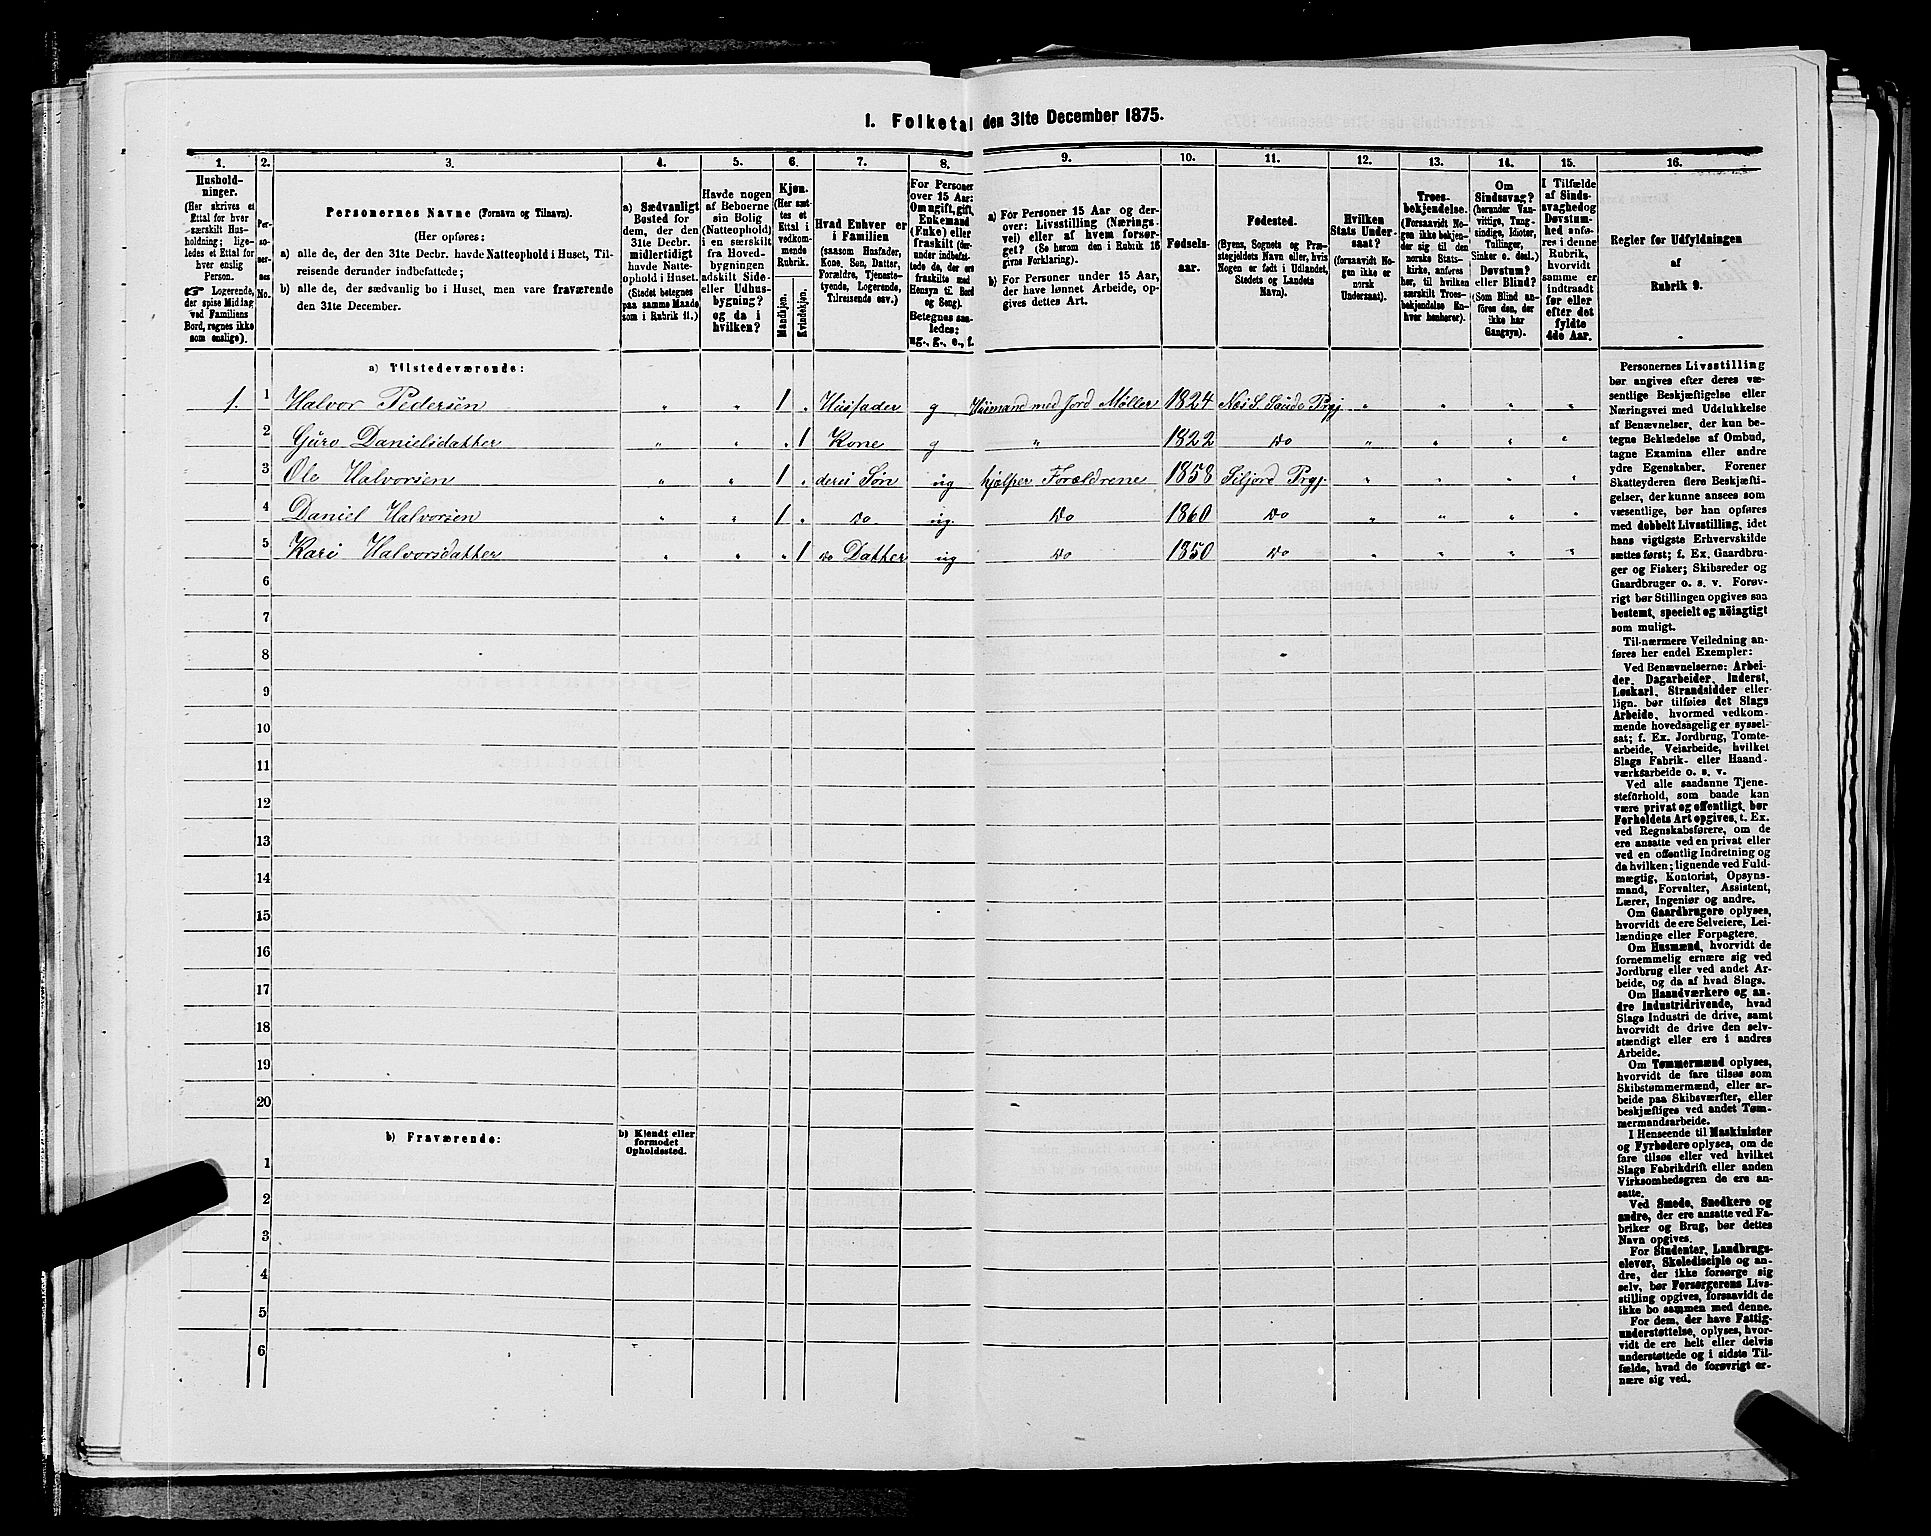 I. Folketal den 31te December 1875.
1. 2. 3. 4. 5. 6. 7. 8. 9. 10. 11. 12. 13. 14. 15. 16.
Husholdninger.
(Her skrives et
Ettal for hver
særskilt Husholdning;
ligeledes et Ettal for
hver enslig
Person.
☞ Logerende,
der spise Middag
ved Familiens
Bord, regnes ikke
som enslige).
Personernes No.
Personernes Navne (Fornavn og Tilnavn).
(Her opføres:
a) alle de, der den 31te Decbr. havde Natteophold i Huset, Tilreisende
derunder indbefattede;
b) alle de, der sædvanlig bo i Huset, men vare fraværende
den 31te December.
a) Sædvanligt
Bosted for
dem, der den
31te Decbr.
midlertidigt
havde Natteophold
i Huset.
(Stedet betegnes
paa samme Maade
som i Rubrik 11.)
Havde nogen
af Beboerne
sin Bolig
(Natteophold)
i en særskilt
fra Hovedbygningen
adskilt Side-
eller Udhusbygning?
og da i
hvilken?
Kjøn.
(Her sættes
et Ettal i
vedkommende
Rubrik.
Mandkjøn.
Kvindekjøn.
Hvad Enhver er
i Familien
(saasom Husfader,
Kone, Søn, Datter,
Forældre, Tjenestetyende,
Logerende,
Tilreisende osv.)
For Personer
over 15 Aar:
Om ugift, gift,
Enkemand
(Enke) eller
fraskilt (derunder
indbefattede
de, der ere
fraskilte med
Hensyn til Bord
og Seng).
Betegnes saaledes:
ug., g., e., f.
a) For Personer 15 Aar og derover:
Livsstilling (Næringsvei)
eller af hvem forsørget?
(Se herom den i Rubrik 16
givne Forklaring).
b) For Personer under 15 Aar,
der have lønnet Arbeide, opgives
dettes Art.
Fødselsaar.
Fødested.
(Byens, Sognets og Præstegjeldets
Navn eller, hvis
Nogen er født i Udlandet,
Stedets og Landets
Navn).
Hvilken
Stats Undersaat?
(forsaavidt Nogen
ikke er
norsk
Undersaat).
Troesbekjendelse.
(Forsaavidt Nogen
ikke bekjender
sig til den
norske Statskirke,
anføres
her, til hvilken
særskilt Troesbekjendelse
Enhver
henhører).
Om
Sindssvag?
(herunder Vanvittige,
Tungsindige,
Idioter,
Tullinger,
Sinker o. desl.)
Døvstum?
eller Blind?
(Som Blind anføres
den, der
ikke har
Gangsyn).
I Tilfælde
af Sindssvaghed
og
Døvstumhed
anføres
i denne
Rubrik,
hvorvidt
samme er
indtraadt
før eller
efter det
fyldte
4de Aar.
Regler for Udfyldningen
af
Rubrik 9.
a) Tilstedeværende:
1. 1 Halvor Pedersen " " 1 " Husfader g Husmand med Jord Møller 1824 Næs S. Saude Prgj " " " "
2 Guro Danielsdatter " " " 1 Kone g " 1822 Do " " " "
3 Ole Halvorsen " " 1 " deres Søn ug hjælper Forældrene 1858 Siljord Prgj. " " " "
4 Daniel Halvorsen " " 1 " Do. ug. Do 1860 Do " " " "
5 Kari Halvorsdatter " " " 1 Do Datter ug Do 1850 Do " " " "
6
7
8
9
10
11
12
13
14
15
16
17
18
19
20
b) Fraværende:
b) Kjendt eller
formodet
Opholdssted.
1
2
3
4
5
6
Personernes Livsstilling
bør angives efter deres væsentlige
Beskjæftigelse eller
Næringsvei med Udelukkelse
af Benævnelser, der kun betegne
Beklædelse af Ombud,
tagne Examina eller andre
ydre Egenskaber. Forener
Skatteyderen flere Beskjæftigelser,
der kunne ansees som
væsentlige, bør han opføres
med dobbelt Livsstilling, idet
hans vigtigste Erhvervskilde
sættes først; f. Ex. Gaardbruger
og Fisker; Skibsreder og
Gaardbruger o. s. v. Forøvrigt
bør Stillingen opgives saa
bestemt, specielt og nöiagtigt
som muligt.
Til nærmere Veiledning anføres
her endel Exempler:
Ved Benævnelserne: Arbeider,
Dagarbeider, Inderst,
Løskarl, Strandsidder eller
lign. bør tilføies det Slags
Arbeide, hvormed vedkommende
hovedsagelig er sysselsat;
f. Ex. Jordbrug, Tomtearbeide,
Veiarbeide, hvilket
Slags Fabrik- eller Haandværksarbeide
o. s. v.
Ved alle saadanne Tjenesteforhold,
som baade kan
være privat og offentligt, bør
Forholdets Art opgives, t. Ex.
ved Regnskabsførere, om de
ere ansatte ved en privat eller
ved en offentlig Indretning og
da hvilken; lignende ved Fuldmægtig,
Kontorist, Opsynsmand,
Forvalter, Assistent,
Lærer, Ingeniør og andre.
Om Gaardbrugere oplyses,
hvorvidt de ere Selveiere, Leilændinge
eller Forpagtere.
Om Husmænd, hvorvidt de
fornemmelig ernære sig ved
Jordbrug eller ved andet Arbeide,
og da af hvad Slags.
Om Haandværkere og andre
Industridrivende, hvad
Slags Industri de drive, samt
hvorvidt de drive den selvstændigt
eller ere i andres
Arbeide.
Om Tømmermænd oplyses,
hvorvidt de fare tilsøs som
Skibstømmermænd, eller arbeide
paa Skibsværfter, eller
beskjæftiges ved andet Tømmermandsarbeide.
I Henseende til Maskinister
og Fyrbødere oplyses, om de
fare tilsøs eller ved hvilket
Slags Fabrikdrift eller anden
Virksomhedsgren de ere ansatte.
Ved Smede, Snedkere og
andre, der ere ansatte ved Fabriker
og Brug, bør dettes
Navn opgives.
For Studenter, Landbrugselever,
Skoledisciple og andre,
der ikke forsørge sig
selv, bør Forsørgerens Livsstilling
opgives, forsaavidt de
ikke bo sammen med denne.
For dem, der have Fattigunderstøttelse,
oplyses, hvorvidt
de ere helt eller delvis
understøttede og i sidste Tilfælde,
hvad de forøvrigt ernære
sig ved.